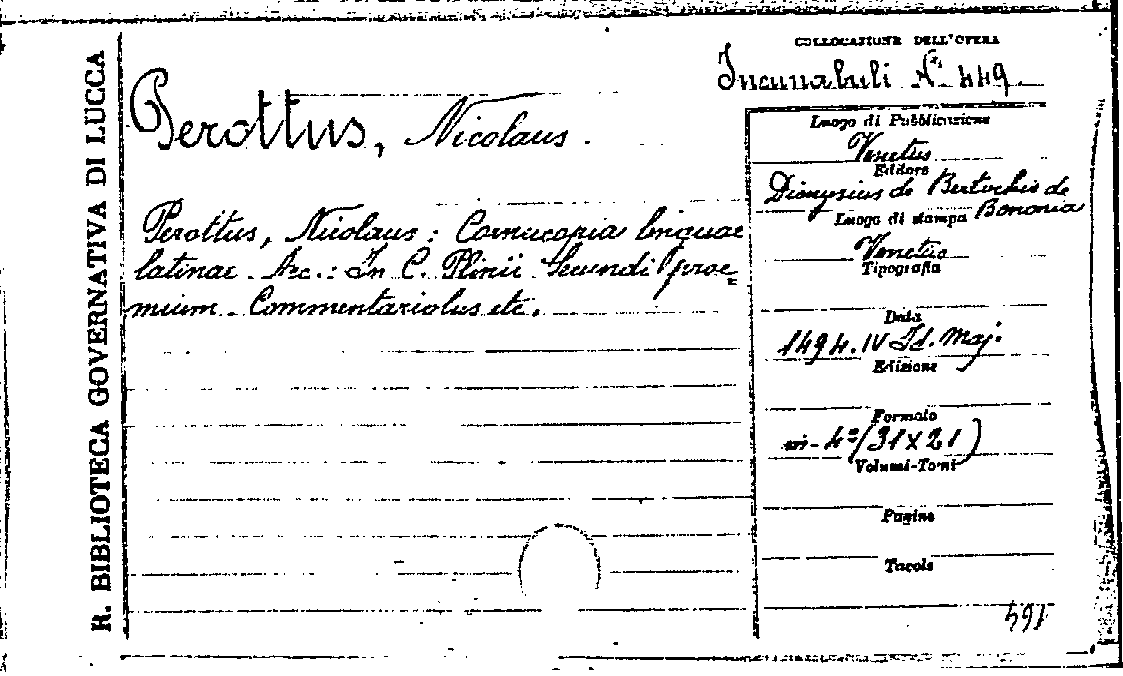 R. BIBLIOTECA GOVERNATIVA DI LUCCA
COLLOCAZIONE DELL'OPERA
Incunabuli N. 449
Perottus, Nicolaus.
Perottus, Nicolaus: Cornucopia linguae
latinae. Acc.: In C. Plinii Secundi proe
mium. Commentariolus etc.
Luogo di Pubblicazione
Venetus
Editore
Dionysius de Bertochis de
Bononia
Luogo di stampa
Venetus
Tipografia
Data
1494. IV Id. Maj.
Edizione
Formato
in-4º (31X21)
Volumi-Tomi
Pagine
Tavole